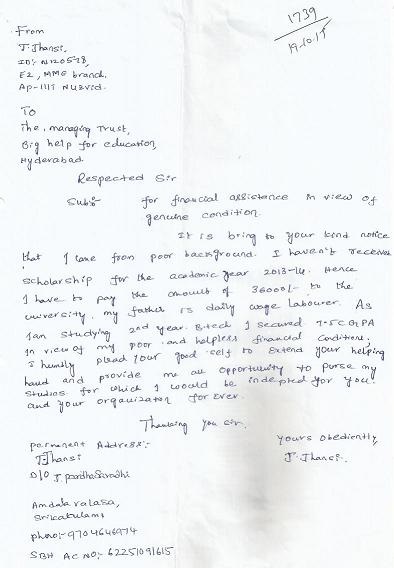 1739
19.10.15
From
J. Jhansi,
ID:- N120578,
E2, MME branch.
AP-IIIT Nuzvid.
To
The, managing Trust,
Big help for education,
Hyderabad
Respected Sir
Sub:- for financial assistance in view of
genuine condition.
It is bring to your kind notice
that I came from poor background. I haven't received
scholarship for the academic year 2013-14. Hence
I have to pay the amount of 36000/- to the
university. my father is daily wage labourer. As
Iam studying 2nd year B.tech I secured 7.5 CGPA
In view of my poor and helpless financial condition.
I humbly plead your good self to extend your helping
hand and provide me an opportunity to purse my
studies for which I would be indepted for you
and your organization for ever.
Thanking you sir.
permanent Address:-
yours obediently,
J. Jhansi
J. Jhansi.
D/O J. pardhasaradhi
Amdalavalasa,
Srikakulam
phono:- 9704646974
SBH AC NO:- 62251091615